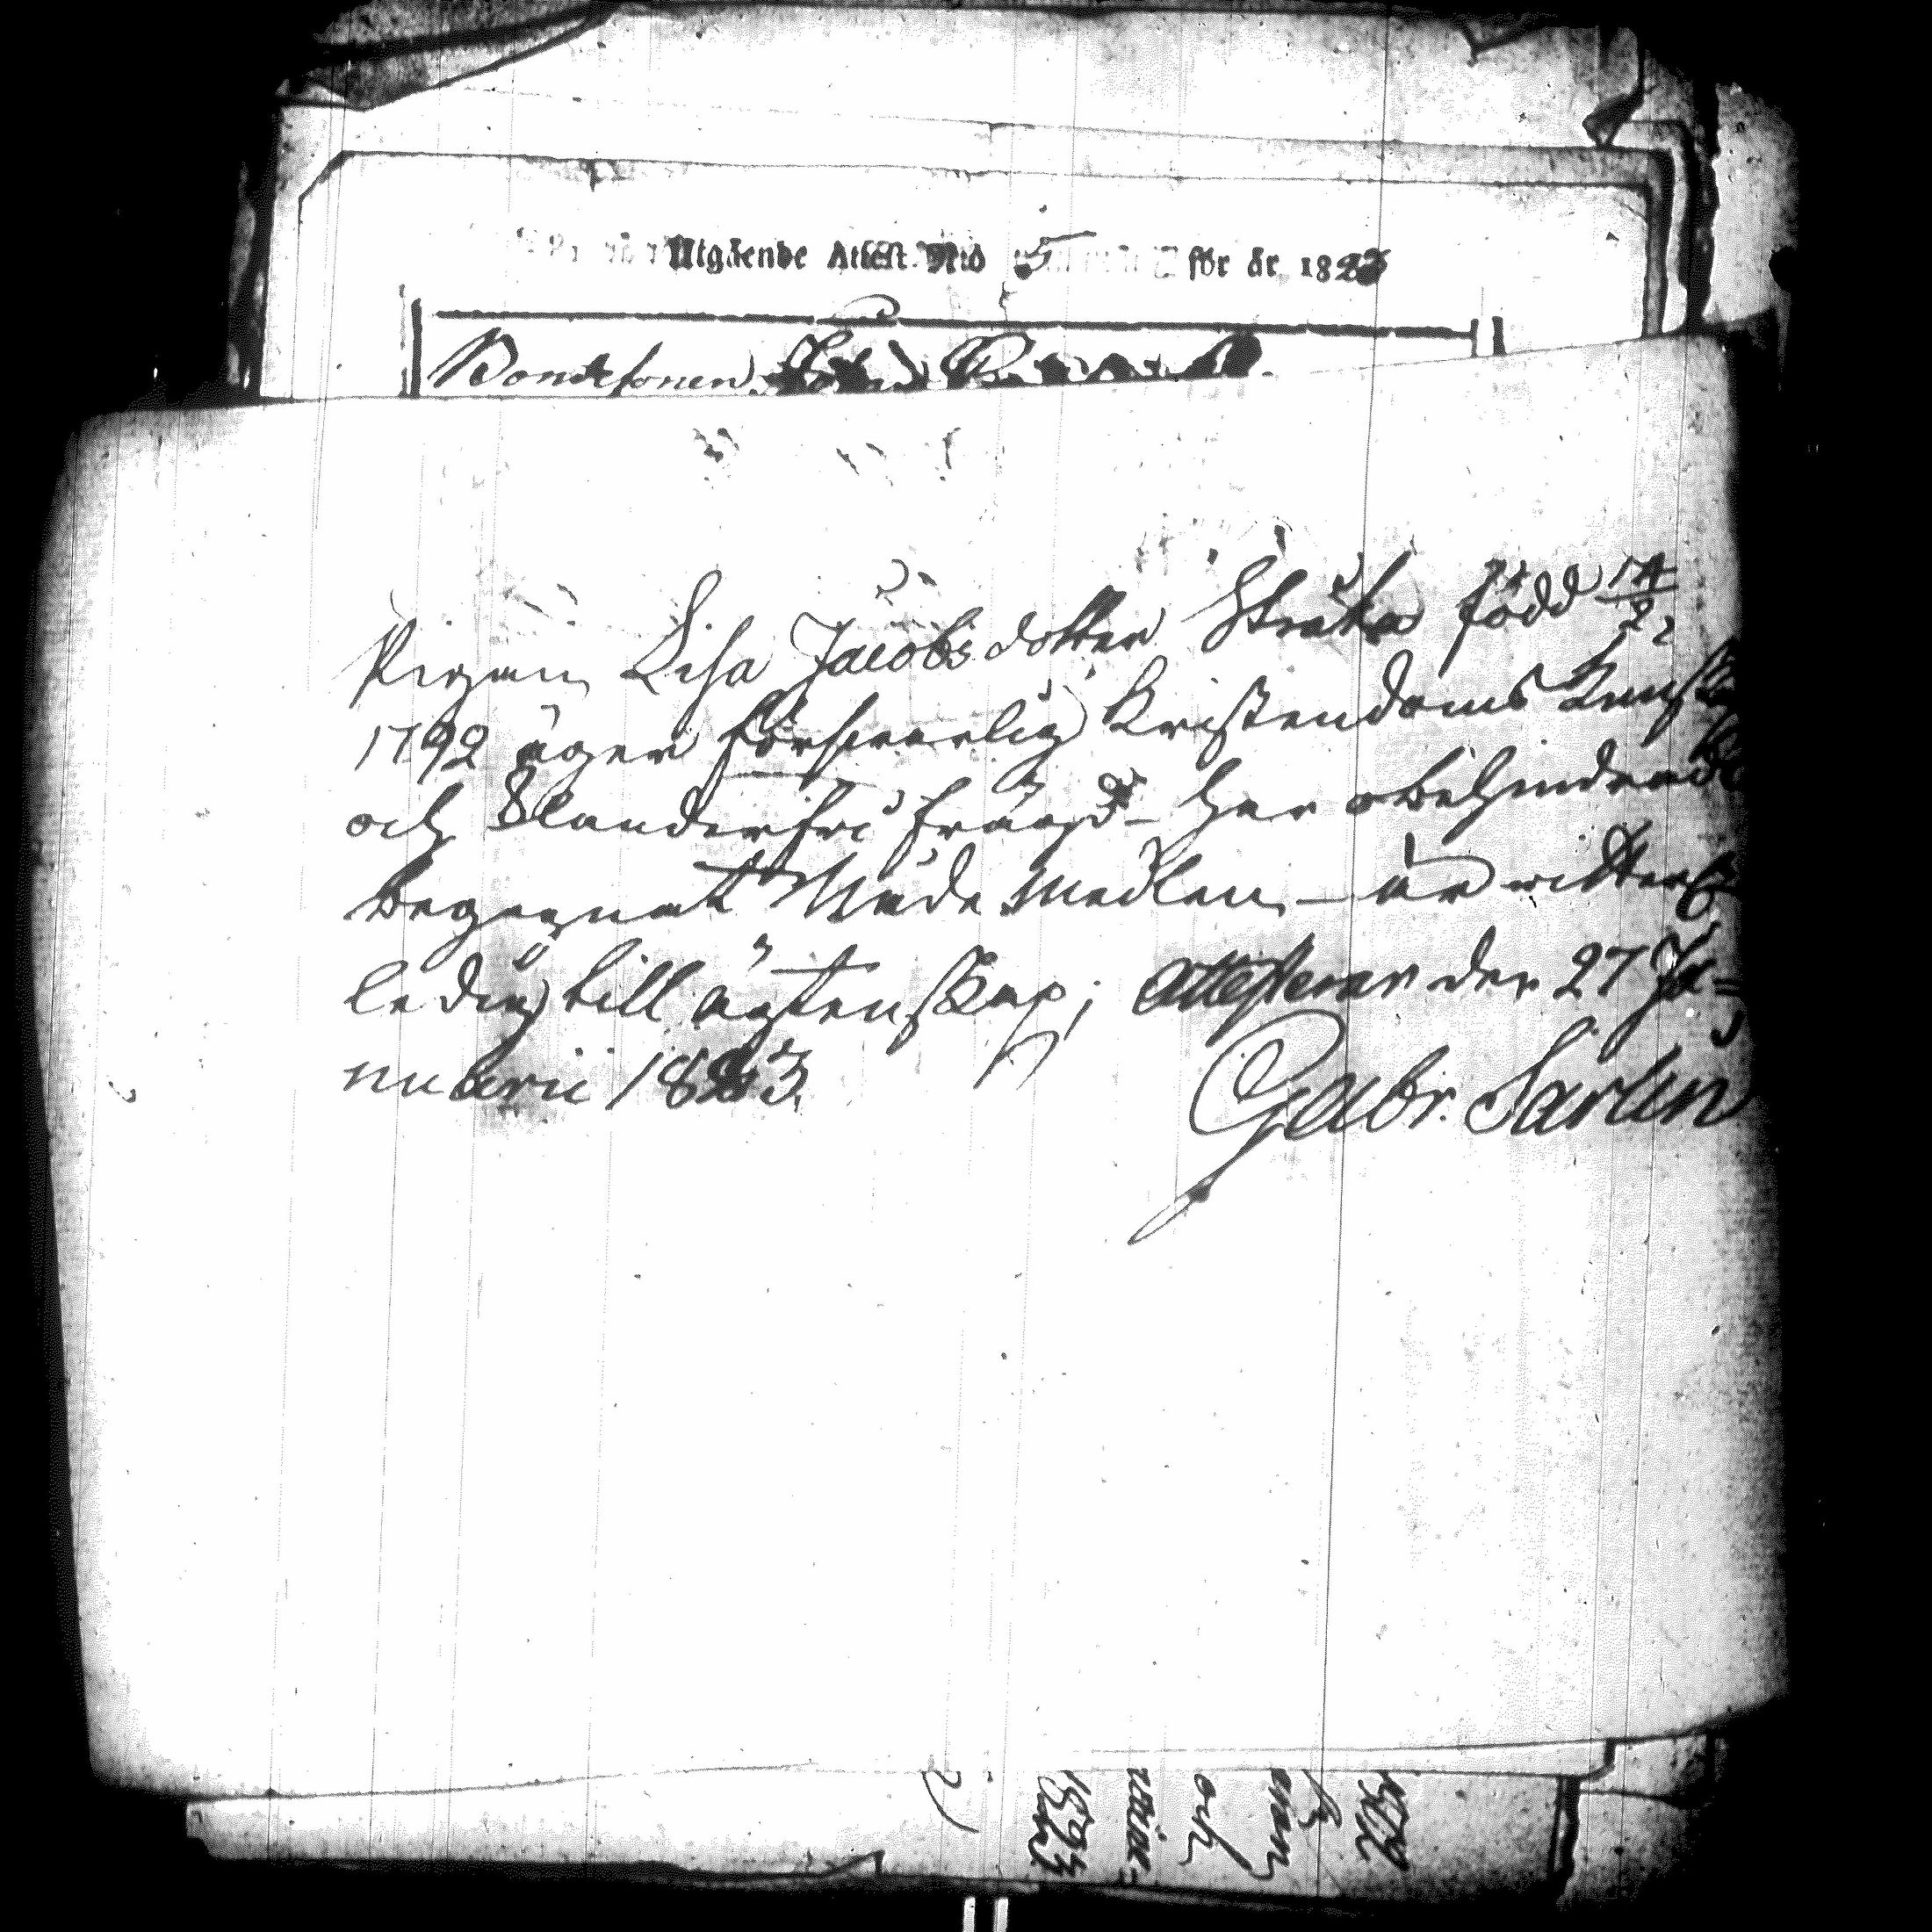 Utgående Attest. N:o 5 för år 1823
Bondesonen
Pigan Lisa Jacobsdotter Stråka född 14/2
1792 äger försvarlig Kristendoms Kunskap
och Klanderfri frägd - har obehindrade
begagnat Nådemedlen - är vitterl.
ledig till ägtenskap; Attesterar den 27 Ja=
nuarii 1823.
Gabr. Sarlin
1823
och